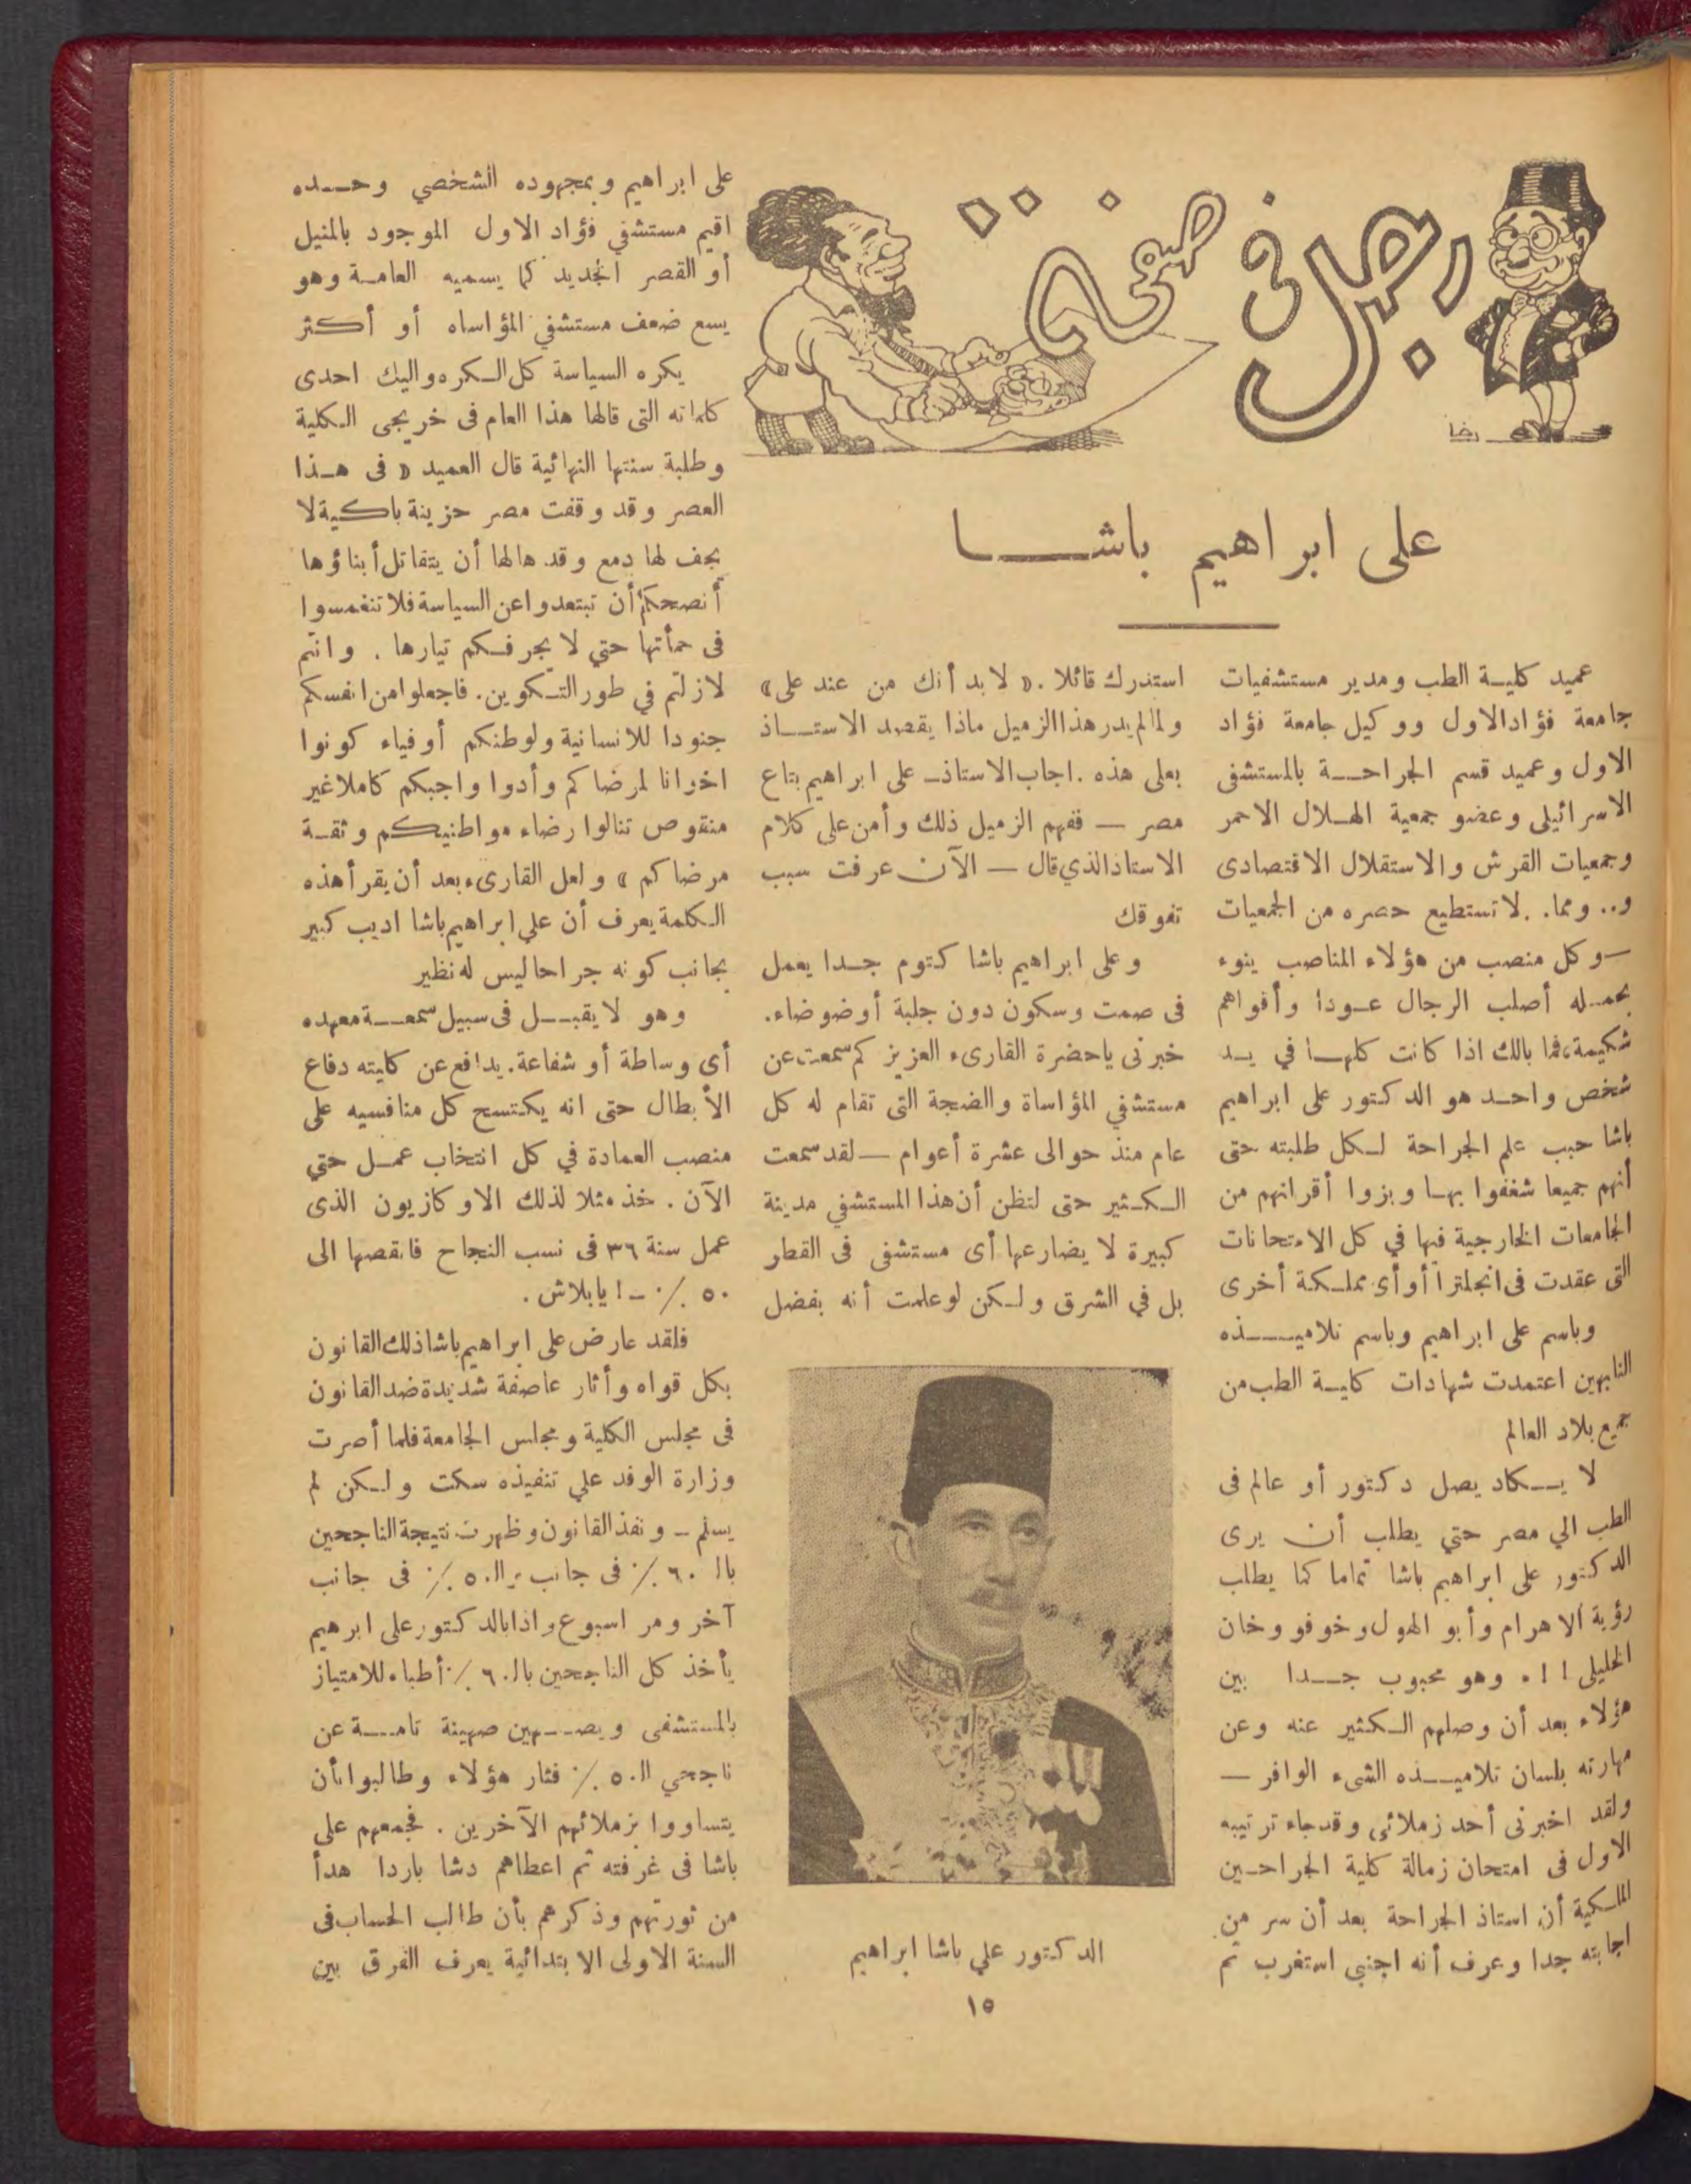 رجل في صفحة
رضا
على ابراهيم باشــا
عميد كليــة الطب ومدير مستشفيات
جامعة فؤاد الاول ووكيل جامعة فؤاد
الاول وعميد قسم الجراحــة بالمستشفى
الاسرائيلى وعضو جمعية الهــلال الاحمر
وجمعيات القرش والاستقلال الاقتصادى
و.. ومما.. لا تستطيع حصره من الجمعيات
—وكل منصب من هؤلاء المناصب ينوء
بحمــله أصلب الرجال عــودا وأقواهم
شكيمة، فما بالك اذا كانت كلهــا في يــد
شخص واحــد هو الدكتور على ابراهيم
باشا حبب علم الجراحة لــكل طلبته حتى
أنهم جميعا شغفوا بهــا وبزوا أقرانهم من
الجامعات الخارجية فيها في كل الامتحانات
التى عقدت فى انجلترا أو أى مملــكة أخرى
وباسم على ابراهيم وباسم تلاميــــذه
النابهين اعتمدت شهادات كليــة الطب من
جميع بلاد العالم
لا يــكاد يصل دكتور أو عالم فى
الطب الي مصر حتي يطلب أن يرى
الدكتور على ابراهيم باشا تماما كما يطلب
رؤية الاهرام وأبو الهول وخوفو وخان
الخليلى !!. وهو محبوب جــدا بين
هؤلاء بعد أن وصلهم الــكثير عنه وعن
مهارته بلسان تلاميــذه الشىء الوافر —
ولقد اخبرنى أحد زملائى وقد جاء ترتيبه
الاول فى امتحان زمالة كلية الجراحــين
الملــكية أن استاذ الجراحة بعد أن سر من
اجابته جدا وعرف أنه اجنبى استغرب ثم
استدرك قائلا . « لا بد أنك من عند على »
ولما لم يدر هذا الزميل ماذا يقصد الاستــاذ
بعلى هذه . اجاب الاستاذ ــ على ابراهيم بتاع
مصر — ففهم الزميل ذلك وأمن على كلام
الاستاذ الذي قال — الآن عرفت سبب
تفوقك
وعلى ابراهيم باشا كتوم جــدا يعمل
فى صمت وسكون دون جلبة أو ضوضاء.
خبرنى ياحضرة القارىء العزيز كم سمعت عن
مستشفي المؤاساة والضجة التى تقام له كل
عام منذ حوالى عشرة أعوام — لقد سمعت
الــكــثير حتى لتظن أن هذا المستشفي مدينة
كبيرة لا يضارعها أى مستشفى فى القطر
بل في الشرق ولــكن لو علمت أنه بفضل
الدكتور علي باشا ابراهيم
على ابراهيم وبمجهوده الشخصي وحــده
اقيم مستشفي فؤاد الاول الموجود بالمنيل
أو القصر الجديد كما يسميه العامــة وهو
يسع ضعف مستشفي المؤاساه أو أكثر
يكره السياسة كل الــكره واليك احدى
كلماته التى قالها هذا العام فى خريجى الــكلية
وطلبة سنتها النهائية قال العميد « فى هــذا
العصر وقد وقفت مصر حزينة باكية لا
يجف لها دمع وقد هالها أن يتقاتل أبناؤها
أنصحكم أن تبتعدوا عن السياسة فلا تنغمسوا
فى حمأتها حتي لا يجرفــكم تيارها . وانتم
لازلتم في طور التــكوين. فاجعلوا من انفسكم
جنودا للانسانية ولوطنكم أوفياء كونوا
اخوانا لمرضاكم وأدوا واجبكم كاملا غير
منقوص تنالوا رضاء مواطنيكم وثقــة
مرضاكم » ولعل القارىء بعد أن يقرأ هذه
الــكلمة يعرف أن علي ابراهيم باشا اديب كبير
بجانب كونه جراحا ليس له نظير
وهو لا يقبــل فى سبيل سمعــة معهده
أى وساطة أو شفاعة. يدافع عن كليته دفاع
الأبطال حتى انه يكتسح كل منافسيه على
منصب العمادة في كل انتخاب عمــل حتي
الآن . خذ مثلا لذلك الاوكازيون الذى
عمل سنة ٣٦ فى نسب النجاح فانقصها الى
٥٠ ٪ ــ ! يابلاش .
فلقد عارض على ابراهيم باشا ذلك القانون
بكل قواه وأثار عاصفة شديدة ضد القانون
فى مجلس الكلية ومجلس الجامعة فلما أصرت
وزارة الوفد علي تنفيذه سكت ولــكن لم
يسلم ــ ونفذ القانون وظهرت نتيجة الناجحين
بالـ ٦٠ ٪ فى جانب والـ ٥٠ ٪ فى جانب
آخر ومر اسبوع واذا بالدكتور على ابرهيم
يأخذ كل الناجحين بالـ ٦٠ ٪ أطباء للامتياز
بالمستشفى ويصــهين صهينة تامــة عن
ناجحي الـ ٥٠ ٪ فثار هؤلاء وطالبوا بأن
يتساووا بزملائهم الآخرين . فجمعهم على
باشا فى غرفته ثم اعطاهم دشا باردا هدأ
من ثورتهم وذكرهم بأن طالب الحساب فى
السنة الاولى الابتدائية يعرف الفرق بين
١٥